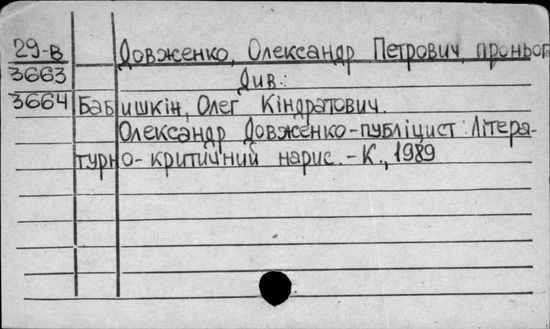 29-в Довженко, Олександр Петрович, про нього
3663 Див.:
3664 Бабишкін, Олег Кіндратович.
Олександр Довженко-публіцист: Літера-
турно-критичний нарис.-К., 1989